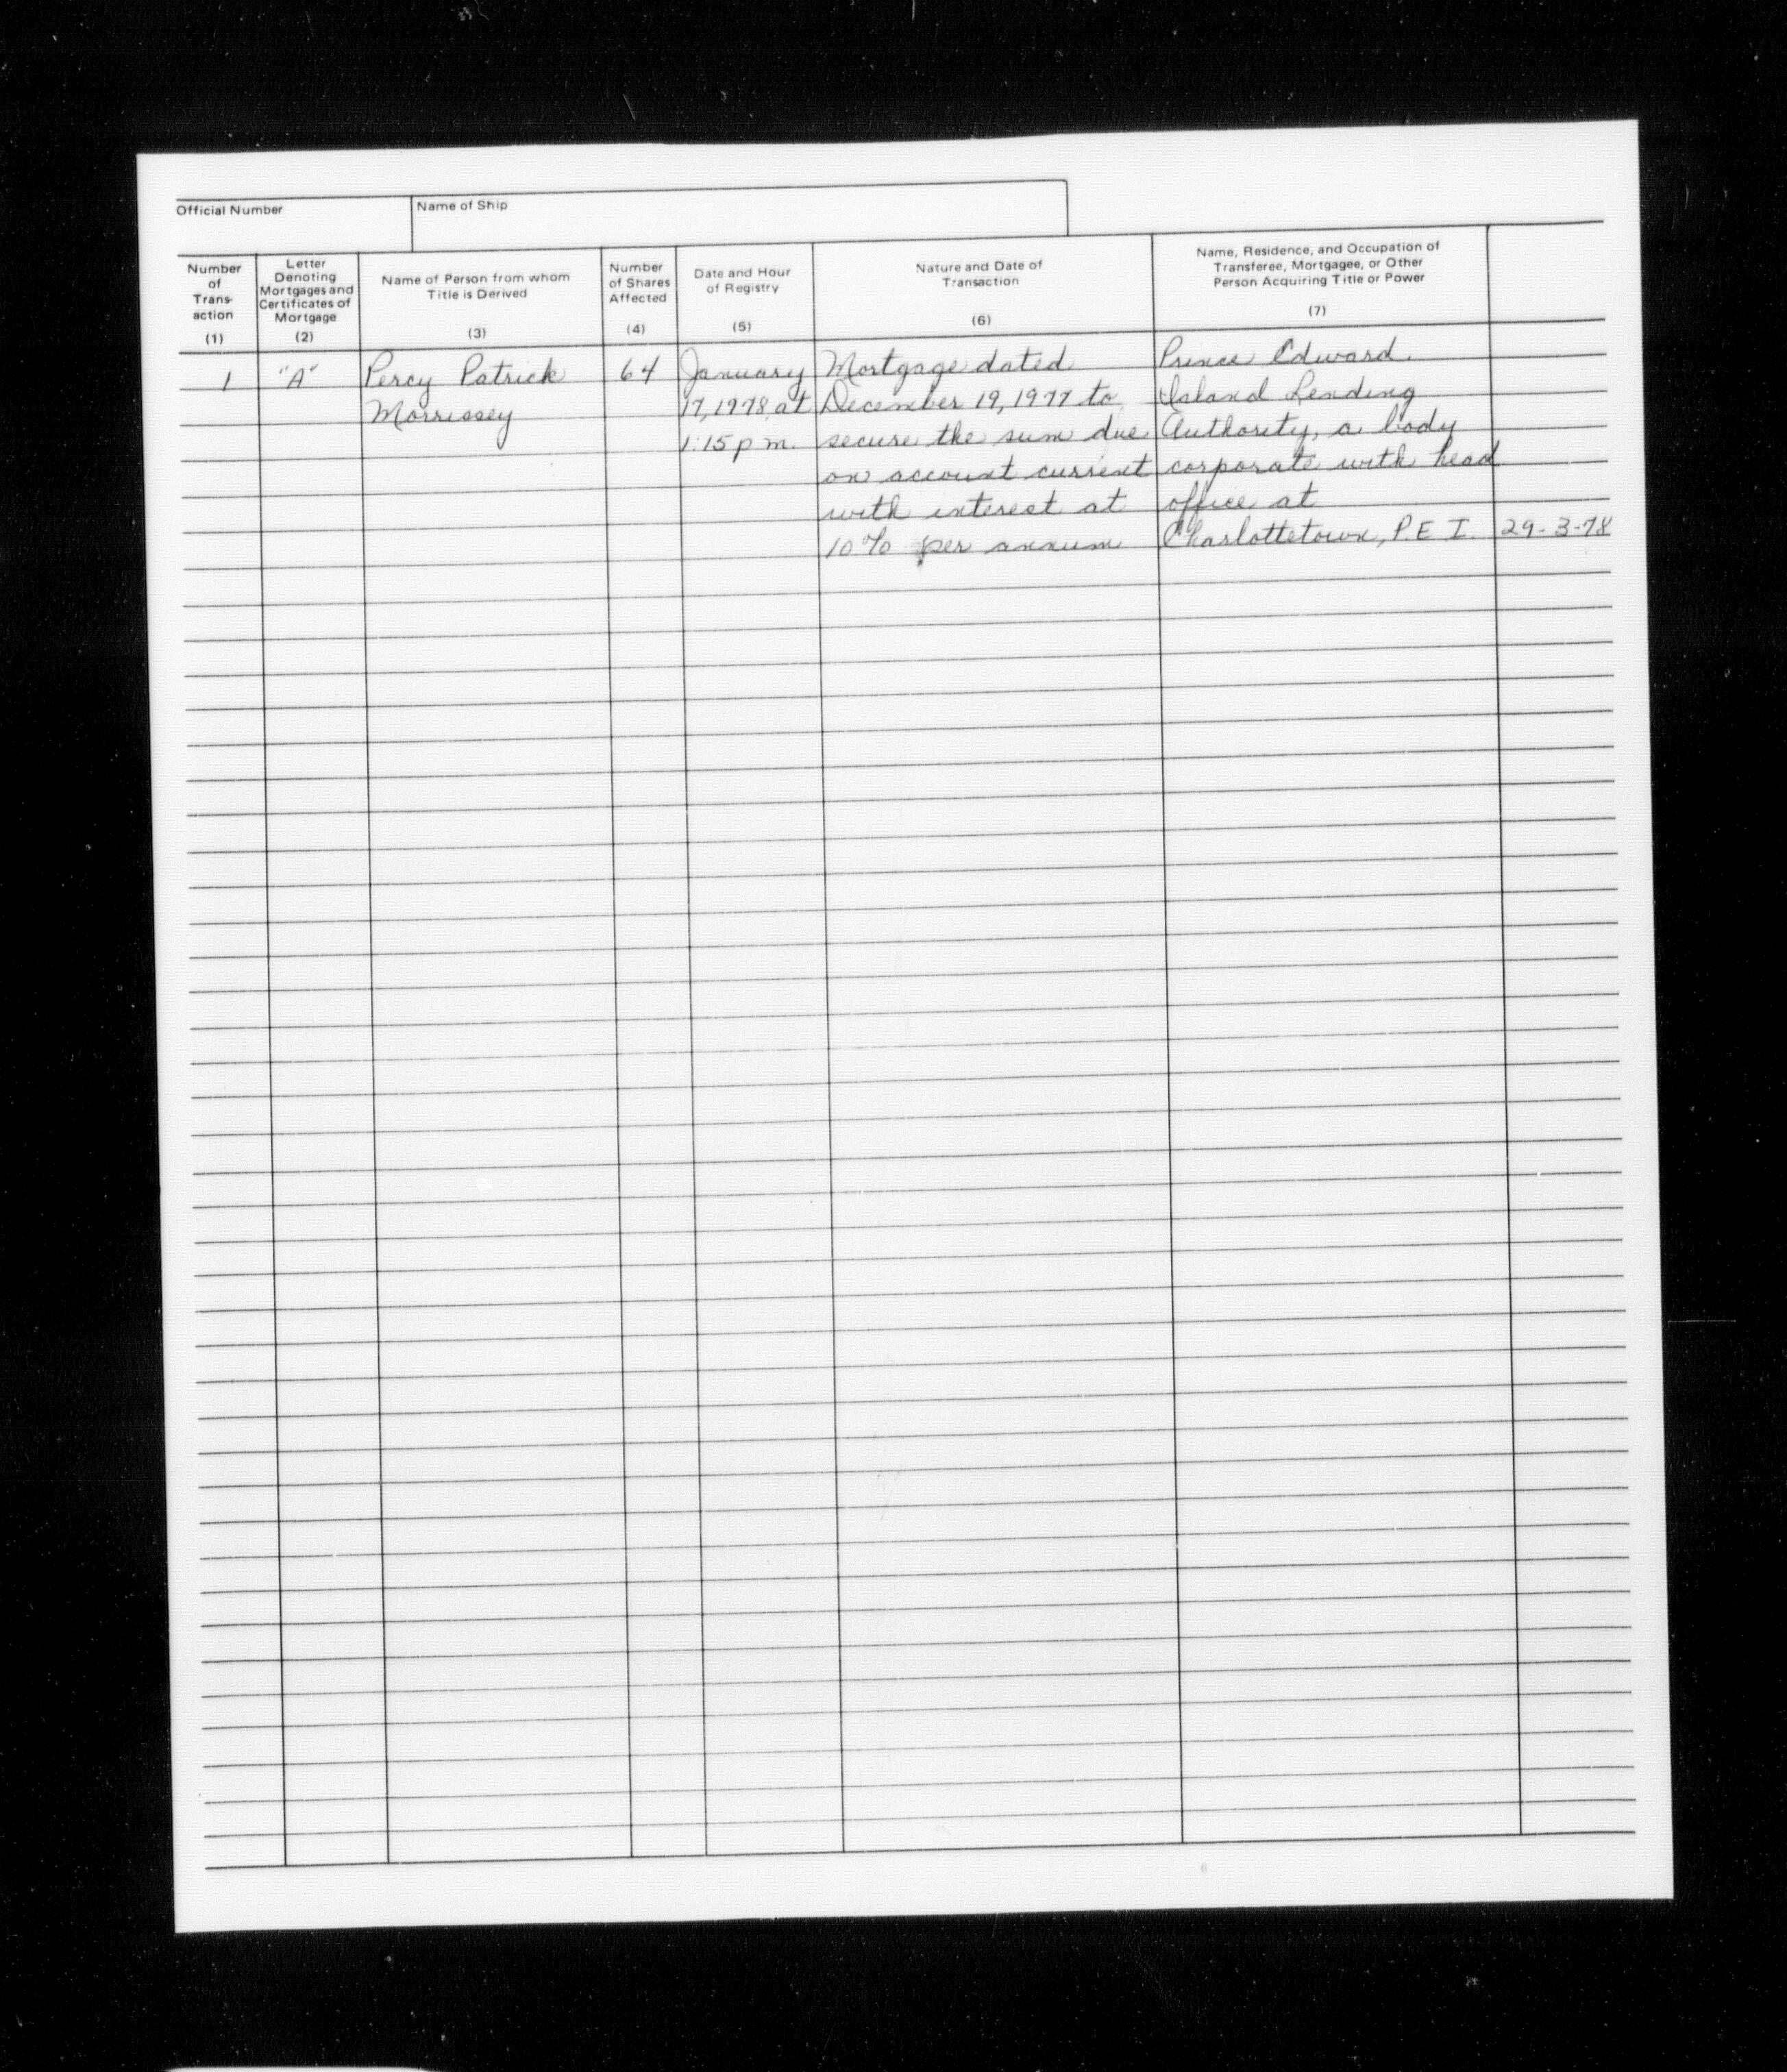 Official Number
Name of Ship
Number of Trans-action (1)
Letter Denoting Mortgages and Certificates of Mortgage (2)
Name of Person from whom Title is Derived (3)
Number of Shares Affected (4)
Date and Hour of Registry (5)
Nature and Date of Transaction (6)
Name, Residence, and Occupation of Transferee, Mortgagee, or Other Person Acquiring Title or Power (7)
1 "A" Percy Patrick 64 January Mortgage dated Prince Edward
Morrissey 17, 1978, at December 19, 1977 to Island Lending
1:15 p m. secure the sum due Authority, a body
on account current corporate with head
with interest at office at
10% per annum Charlottetown, P. E. I. 29-3-78